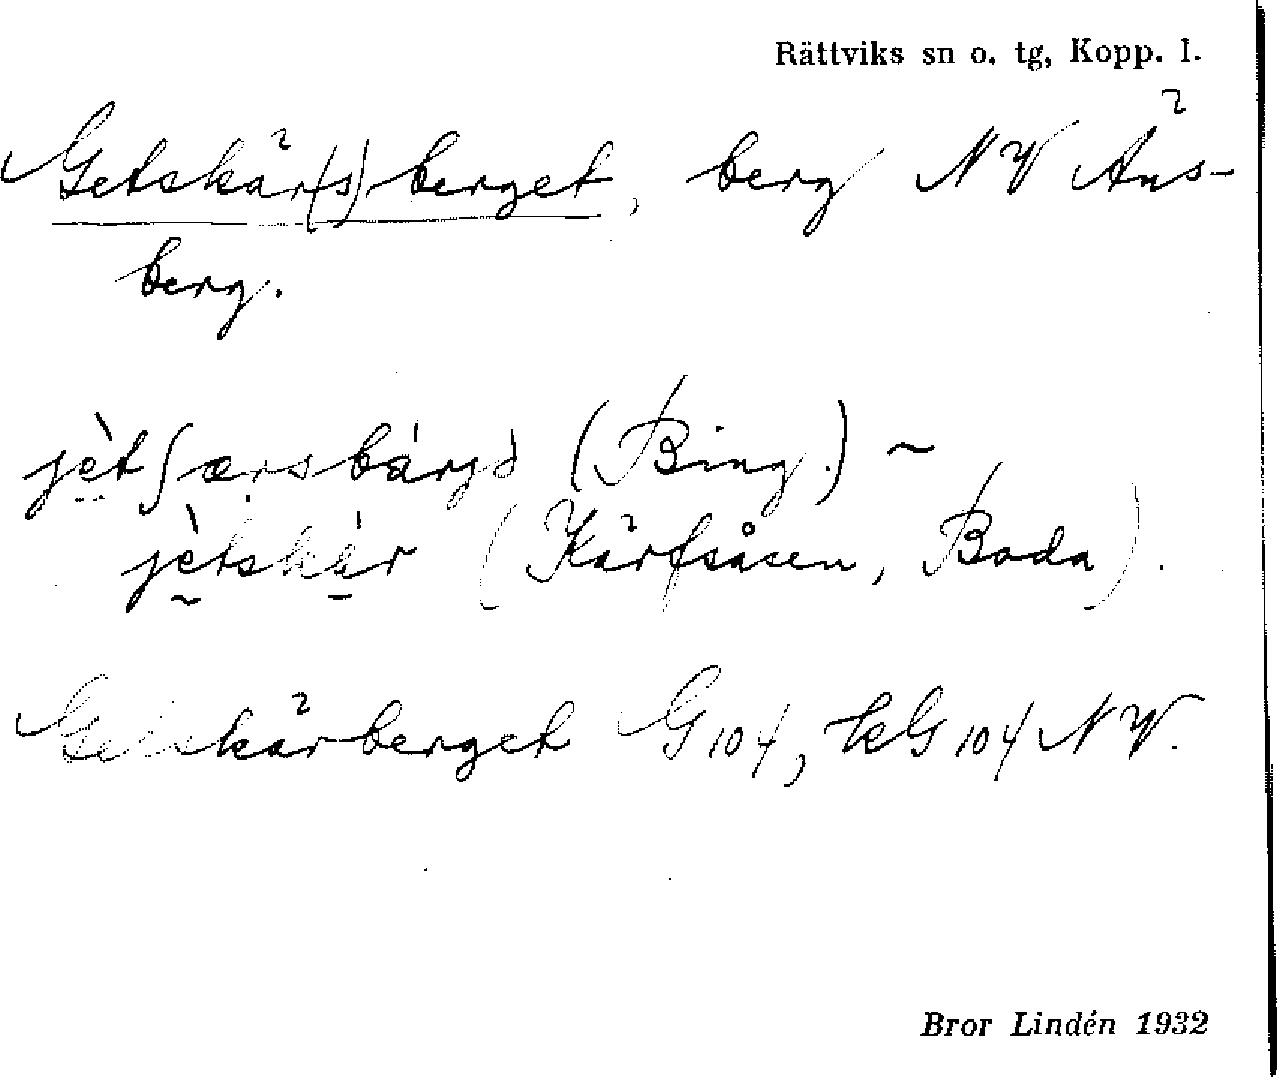 Rättviks sn o. tg, Kopp. l.
Getskär(s)berget, berg NV Äns-
berg.
jètʃærsbárjə (Bing.) ~
jètskár (Kärfsåsen, Boda).
Getskärberget G 104, kG 104 NV.
Bror Lindén 1932